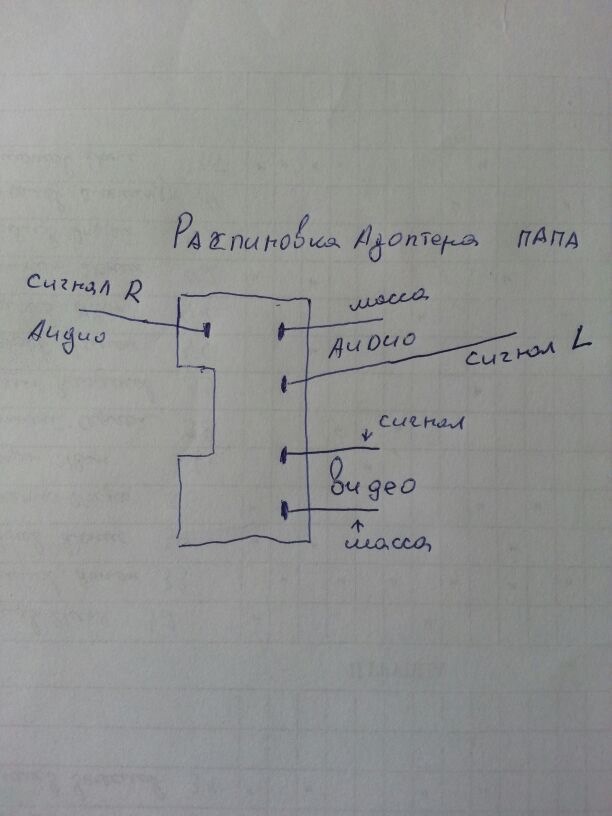 Распиновка Адоптера ПАПА
сигнал R
Аудио
масса
Аудио
сигнал L
сигнал
Видео
масса